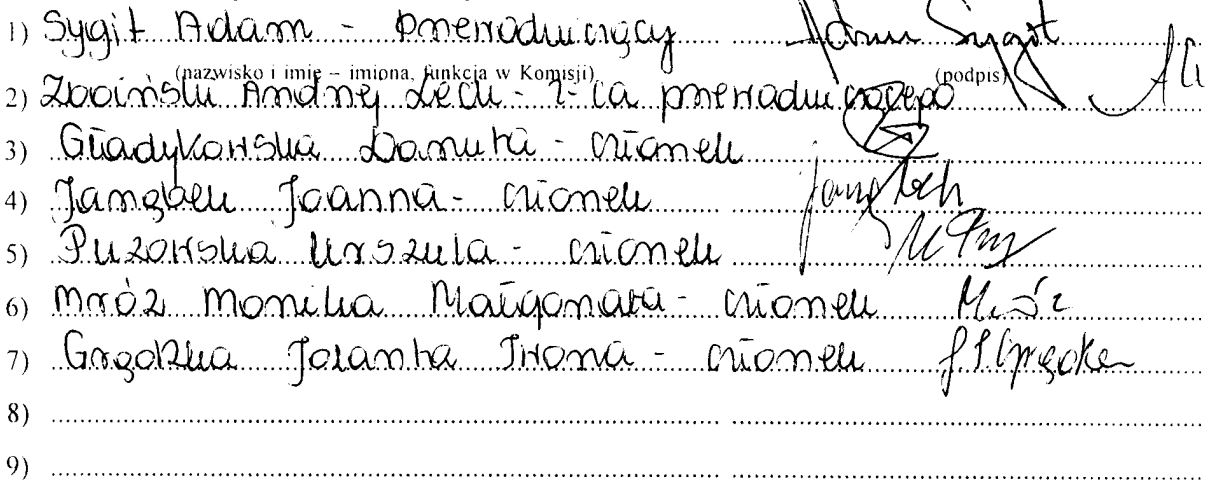 1) Sygit Adam - przewodniczący Adam Sygit
(nazwisko i imię – imiona, funkcja w Komisji) (podpis)
2) Zboiński Andrzej Lech - z-ca przewodniczącego
3) Gładykowska Danuta - członek
4) Janąbek Joanna - członek
5) Puzowska Urszula - członek
6) Mróz Monika Małgorzata - członek Mróz
7) Grądzka Jolanta Iwona - członek
8)
9)